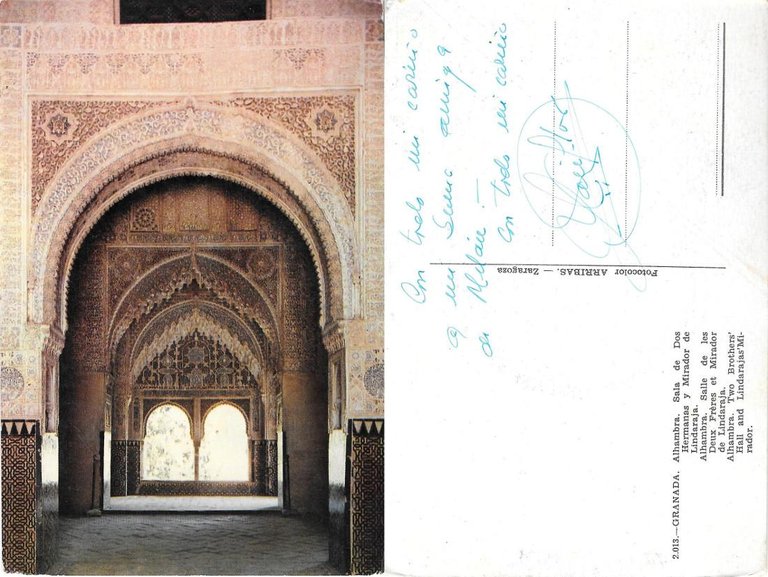 Con todo mi cariño
a mi buena amiga
de
Con todo mi cariño
Fotocolor ARRIBAS. — Zaragoza
2.013.—GRANADA. Alhambra. Sala de Dos
Hermanas y Mirador de
Lindaraja.
Alhambra. Salle de les
Deux Frères et Mirador
de Lindaraja.
Alhambra. Two Brothers'
Hall and Lindarajas'Mi-
rador.